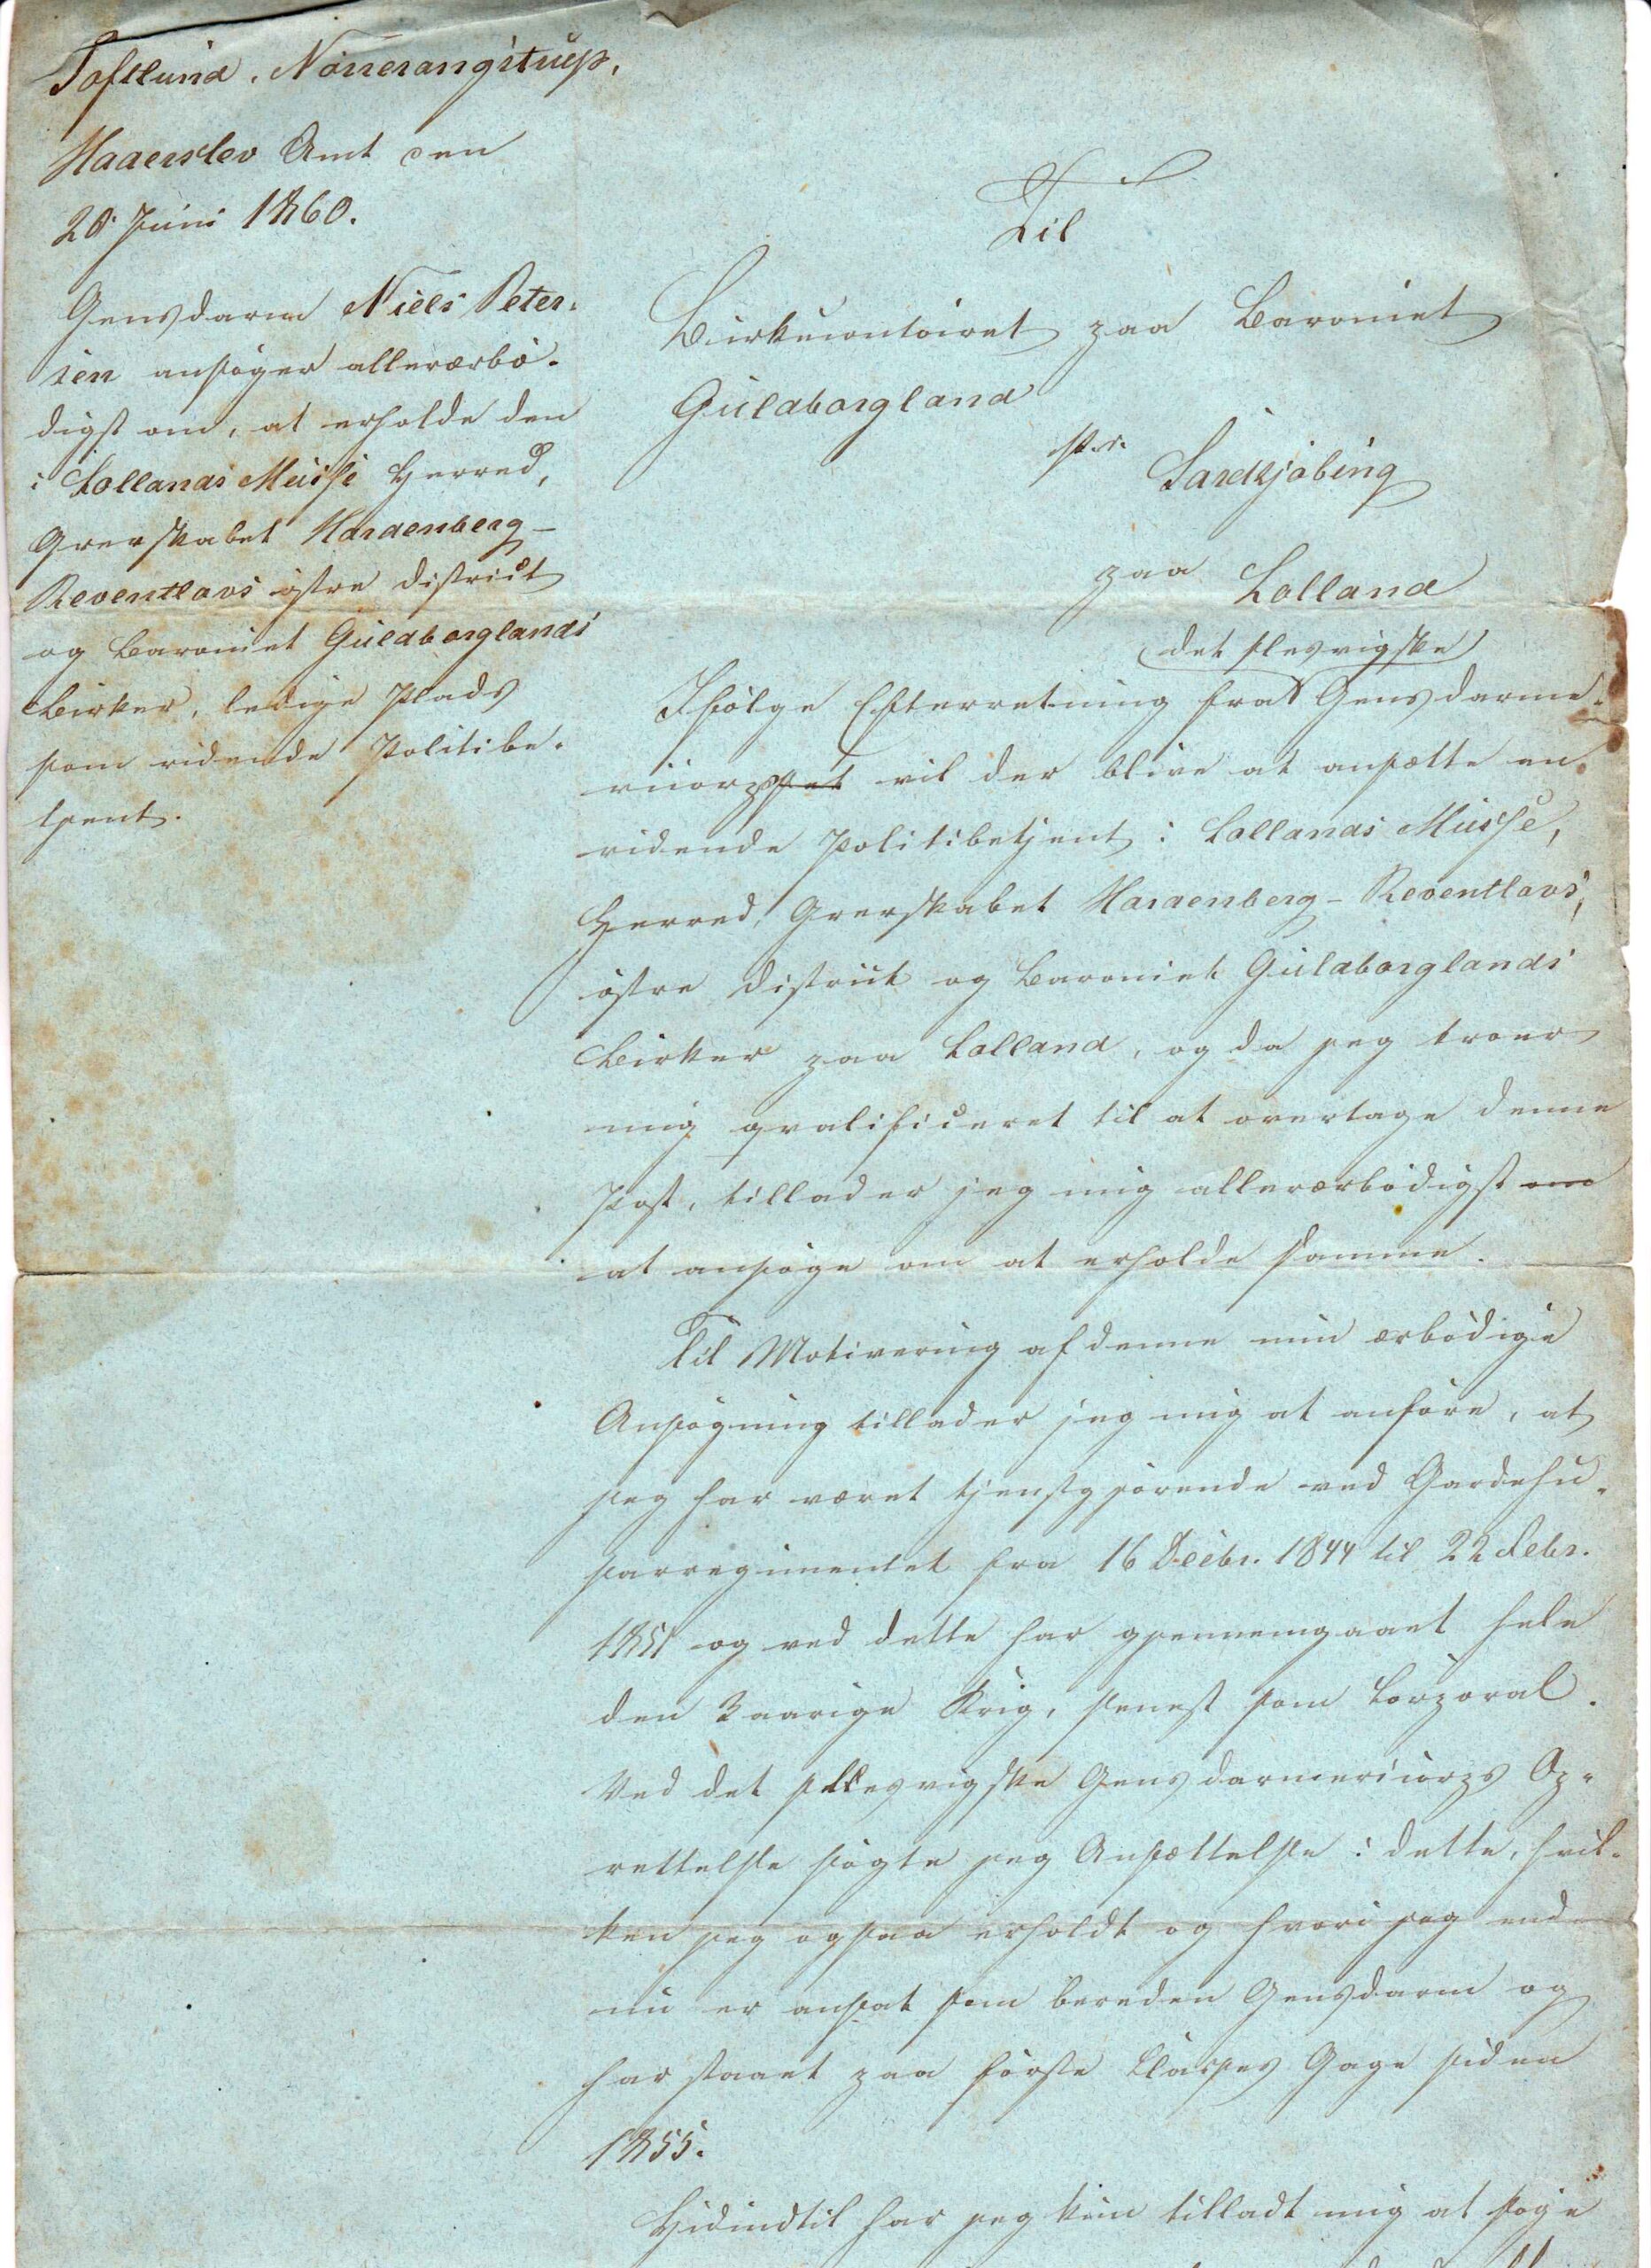 Toftlund, Nörrerangstrup,
Haderslev Amt den
28 Juni 1860.
Gensdarm Niels Peter-
sen ansøger allerærbö-
digst om, at erholde den
i Lollands Musse Herred,
Grevskabet Hardenberg-
Reventlavs østre District
og Baroniet Guldborglands
Birker, ledige Plads
som ridende Politibe-
tjent.
Til
Birkecontoiret paa Baroniet
Guldborgland
pr.
Saxkjøbing
paa Lolland
det slesvigske
Ifølge Efterretning fra Gensdarme-
ricorps vil der blive at ansætte en
ridende Politibetjent i Lollands Musse,
Herred, Grevskabet Hardenberg-Reventlavs,
østre District og Baroniet Guldborglands
Birker paa Lolland, og da jeg troer
mig qvalificeret til at overtage denne
Post, tillader jeg mig allerærbødigst om
at ansøge om at erholde samme.
Til Motivering af denne min ærbødige
Ansøgning tillader jeg mig at anføre, at
jeg har været tjenstgjørende ved Gardehu-
sarregimentet fra 16 Decbr. 1844 til 22 Febr.
1851 og ved dette har gjennemgaaet hele
den 3aarige Krig, senest som Corporal.
Ved det slesvigske Gensdarmericorps Op-
rettelse søgte jeg Ansættelse i dette, hvil-
ken jeg ogsaa erholdt og hvori jeg end-
nu er ansat som bereden Gensdarm og
har staaet paa første Classes Gage siden
1855.
Hidindtil har jeg kun tilladt mig at søge